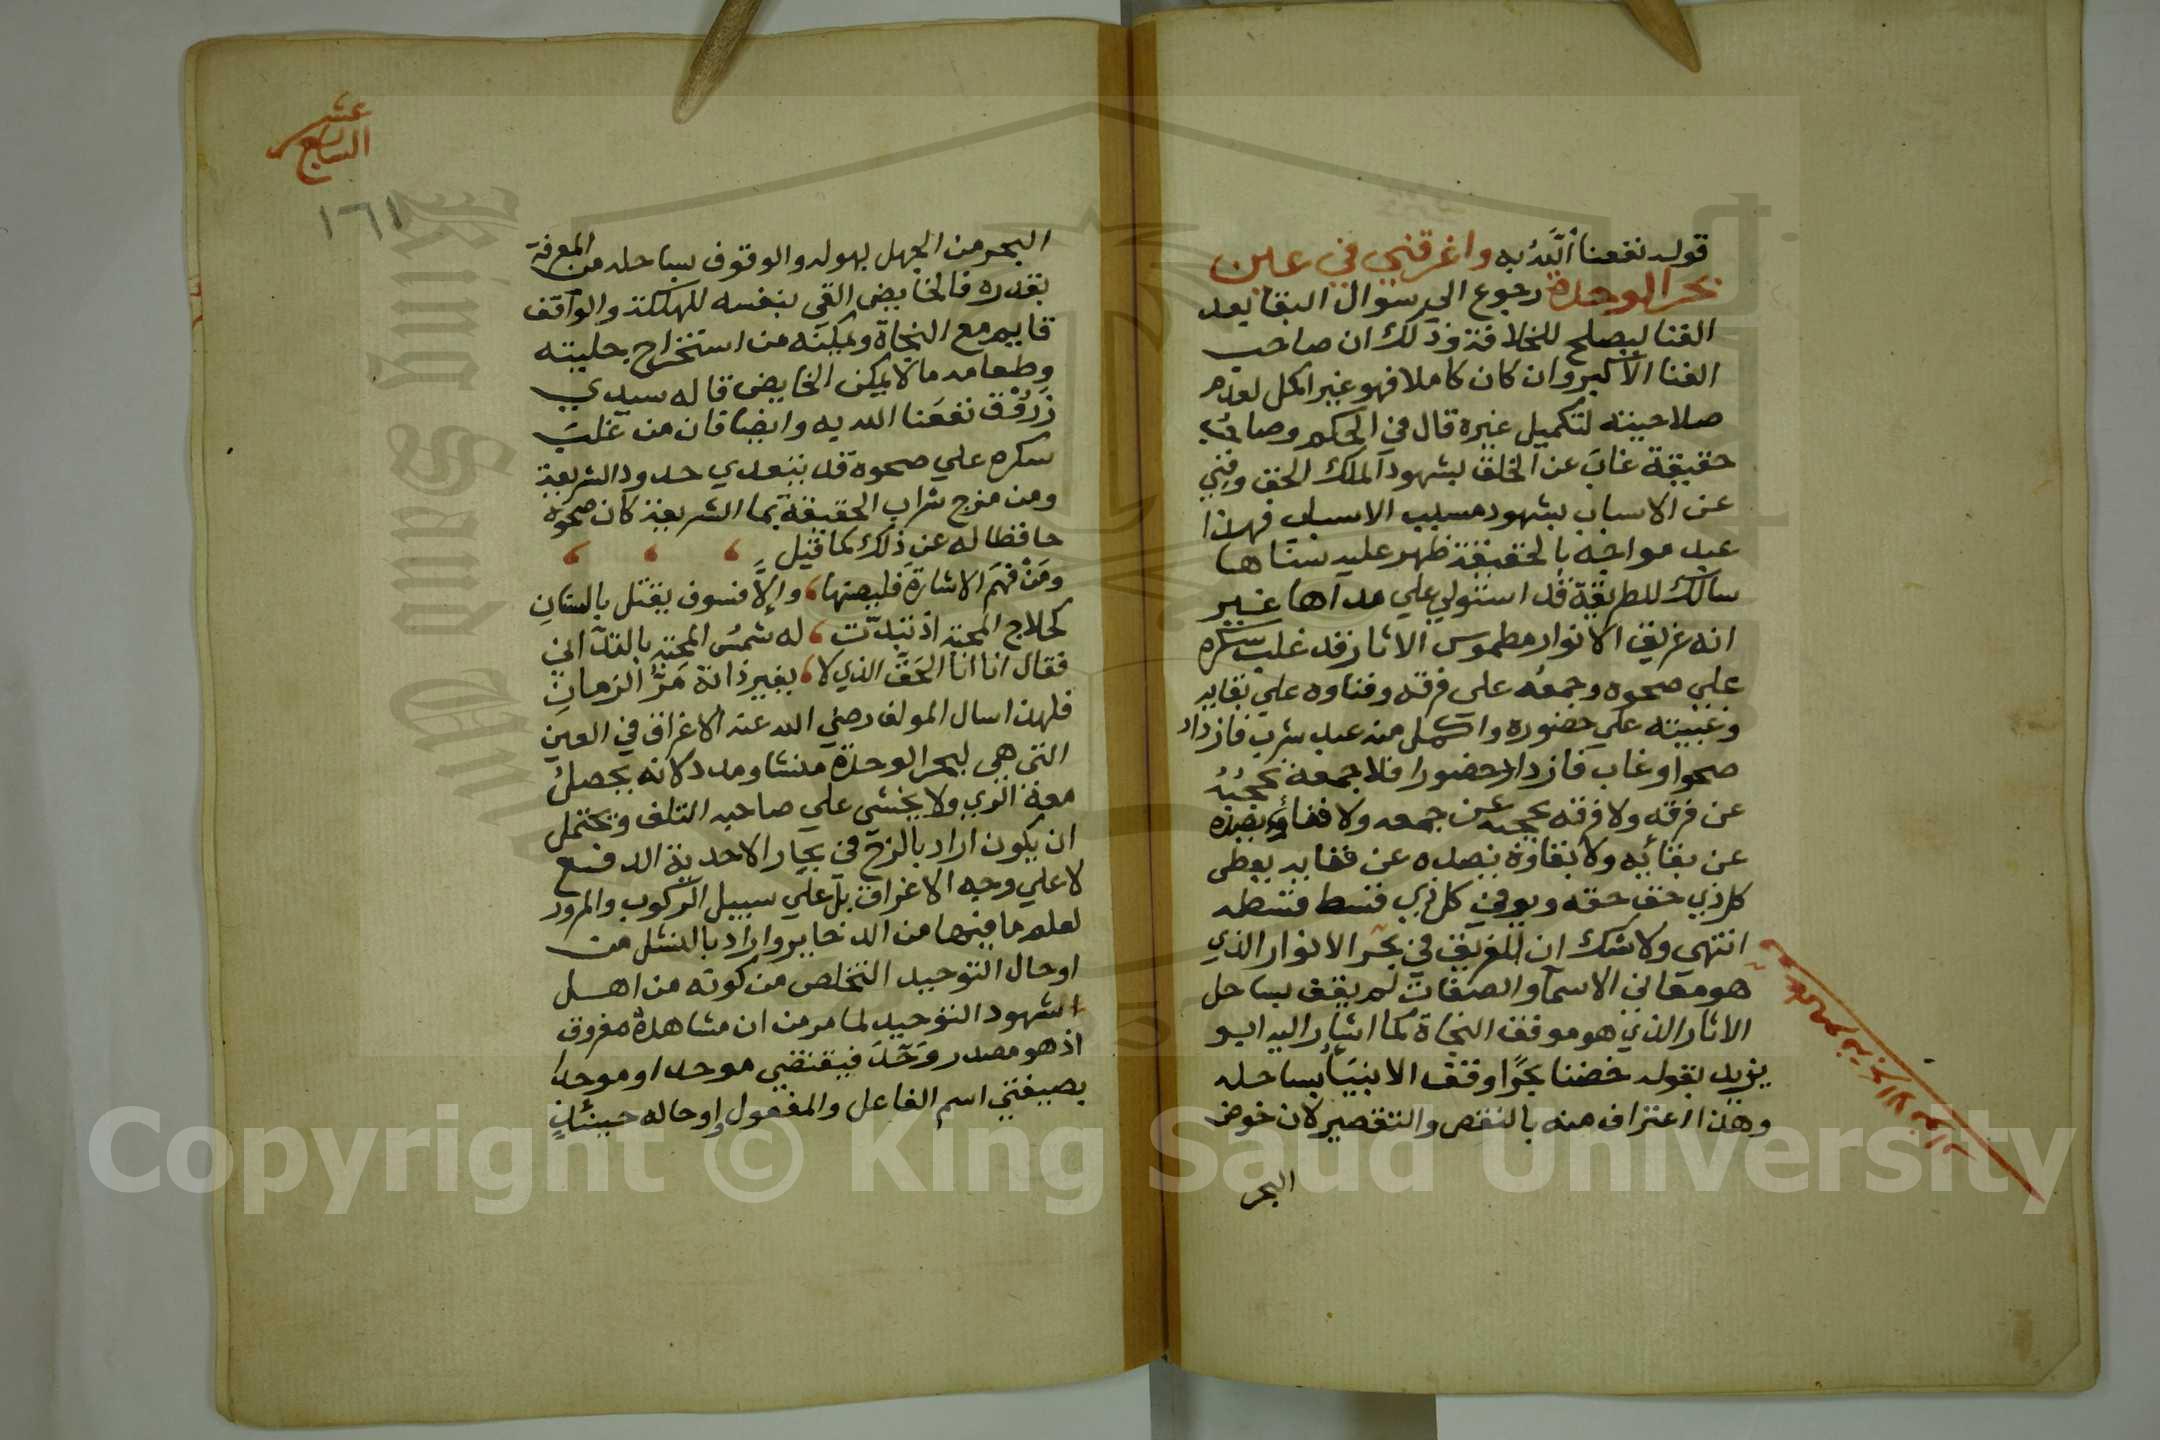 قوله نفعنا الله به واغرقني في عين
بحر الوحدة رجوع الي سوال البقا بعد
الفنا ليصلح للخلافة وذلك ان صاحب
الفنا الاكبر وان كان كاملا فهو غير اكمل لعدم
صلاحيته لتكميل غيره قال في الحكم وصاحب
حقيقة غاب عن الخلق بشهود الملك الحق وفني
عن الاسباب بشهود مسبب الاسباب فهذا
عبد مواجه بالحقيقة ظهر عليه سناها
سالك للطريقة قد استولي علي مداها غير
انه غريق الانوار مطموس الاثار قد غلب سكره
علي صحوه وجمعه علي فرقه وفناوه علي بقايه
وغيبته علي حضوره واكمل منه عبد شرب فازداد
صحوا وغاب فازداد حضورا فلا جمعه يحجبه
عن فرقه ولا فرقه يحجبه عن جمعه ولا فناؤه يصده
عن بقائه ولا بقاوه يصده عن فنايه يعطي
كل ذي حق حقه ويوفي كل ذي قسط قسطه
انتهي ولا شك ان الغريق في بحر الانوار الذي
هو معاني الاسما والصفات لم يقف بساحل
الاثار الذي هو موقف النجاة كما اشار اليه ابو
يزيد بقوله خضنا بحرًا وقف الانبيا بساحله
وهذا اعتراف منه بالنقص والتقصير لان خوض
البحر
عشر
السابع
١٦١
البحر من الجهل بهوله والوقوف بساحله من المعرفة
بقدره فالخايض القي بنفسه للهلكة والواقف
قايم مع النجاة ويمكنه من استخراج حليته
وطعامه ما لا يمكن الخايض قاله سيدي
زَرُّوْق نفعَنا الله به وايضا فان من غلبَ
سكره علي صحوه قد يتعدي حدود الشريعة
ومن مزج شراب الحقيقة بما الشريعة كان صحوه
حافظا له عن ذلك كما قيل
ومَنْ فهَمَ الاشارةَ فليصنها، وإلَّا فسوف يقتل بالسنانِ
كحلاج المحبة اذ تبدّت، له شمسُ المحبة بالتدّاني
فقال انا انا الحَقّ الذي لا، يغير ذاتهُ مَرُّ الزمانِ
فلهذا سال المولف رضي الله عنه الاغراق في العين
التي هي لبحر الوحدة منشا ومدد لانه يحصلُ
معهَ الري ولا يخشي علي صاحبه التلف ويحتمل
ان يكون اراد بالزج في بحار الاحدية الدفع
لا علي وجه الاغراق بل علي سبيل الركوب والمرور
لعلم ما فيها من الدخاير واراد بالنشل من
اوحال التوحيد التخلص من كونه من اهل
الشهود التوحيد لما مر من ان مشاهدة مفروق
اذ هو مصدر وَحَّدَ فيقتضي موحدا وموحدا
بصيغتي اسم الفاعل والمفعول إوحاله حينئذٍ